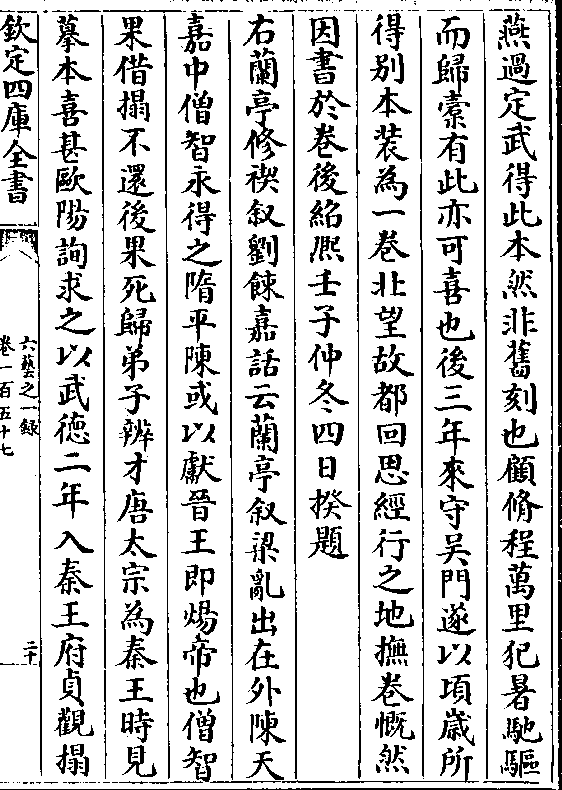 燕過定武得此本然非舊刻也顧脩程萬里犯暑馳驅
而歸槖有此亦可喜也後三年來守吴門遂以項歲所
得别本装為一卷北望故都回思經行之地撫卷慨然
因書於卷後紹熈壬子仲冬四日揆題
右蘭亭修禊叙劉餗嘉話云蘭亭叙梁亂出在外陳天
嘉中僧智永得之隋平陳或以獻晉王即煬帝也僧智
果借搨不還後果死歸弟子辨才唐太宗為秦王時見
摹本喜甚歐陽詢求之以武德二年入秦王府貞觀搨
欽定四庫全書
六藝之一録
卷一百五十七
二十